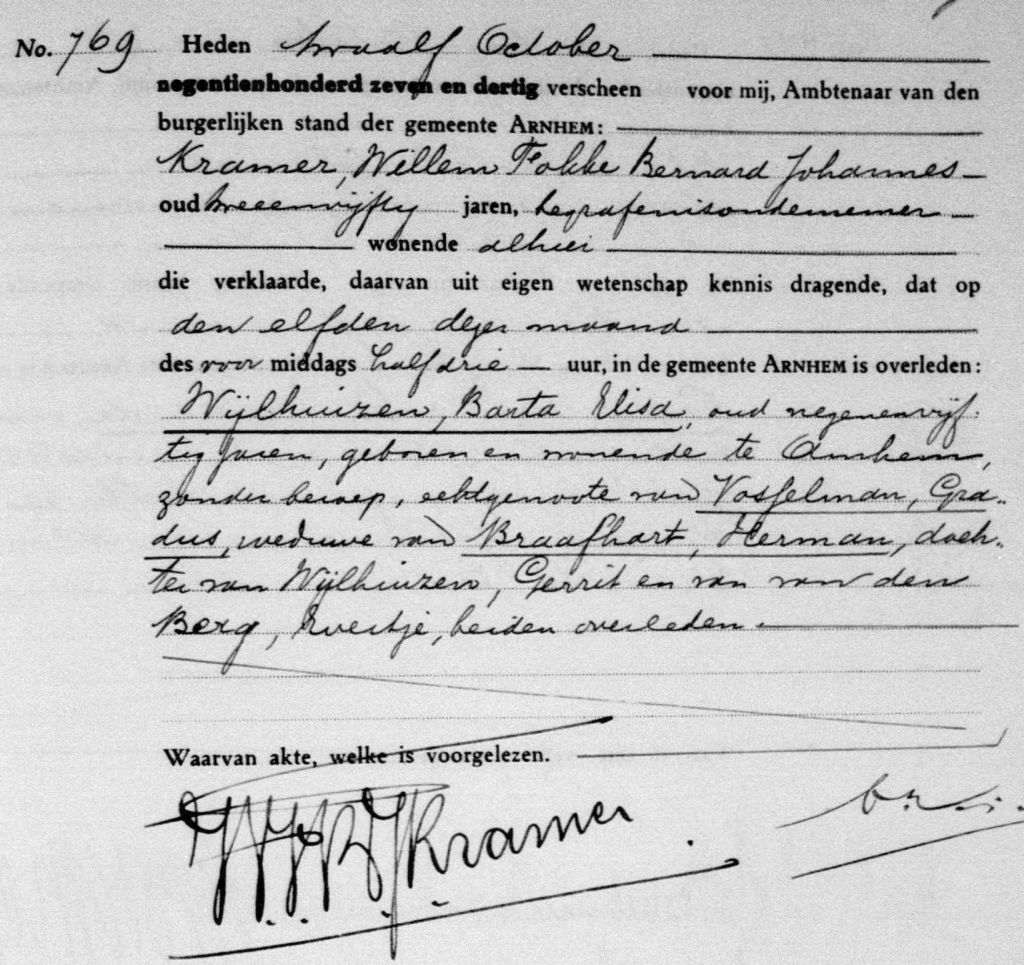 No. 769 Heden twaalf October
negentienhonderd zeven en dertig verscheen voor mij, Ambtenaar van den
burgerlijken stand der gemeente ARNHEM:
Kramer, Willem Fokke Bernard Johannes
oud tweeenvijftig jaren, begrafenisondernemer
wonende alhier
die verklaarde, daarvan uit eigen wetenschap kennis dragende, dat op
den elfden dezer maand
des voor middags half drie uur, in de gemeente ARNHEM is overleden:
Wijlhuizen, Barta Elisa, oud negenenvijf-
tig jaren, geboren en wonende te Arnhem,
zonder beroep, echtgenoote van Vosselman, Gra-
dus, weduwe van Braafhart, Herman, doch-
ter van Wijlhuizen, Gerrit en van van den
Berg, Evertje, beiden overleden.
Waarvan akte, welke is voorgelezen.
W.F.B.J. Kramer